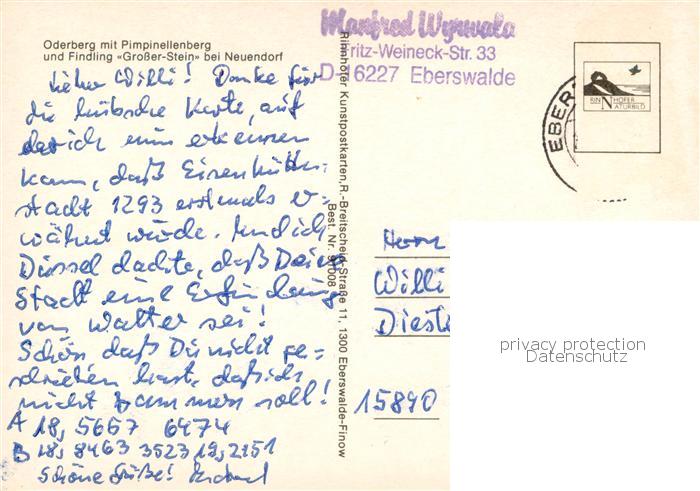 Oderberg mit Pimpinellenberg
und Findling «Großer-Stein» bei Neuendorf
Lieber Willi! Danke für
die hübsche Karte, auf
der ich nun erkennen
kann, daß Eisenhütten-
stadt 1293 erstmals er-
wähnt wurde. Und ich
Dussel dachte, daß Deine
Stadt eine Erfindung
von Walter sei!
Schön daß Du nicht ge-
schrieben hast, daß ich
nicht jammern soll!
A 18, 5667 6474
B 18, 8463 3523 19, 2151
Schöne Grüße! Manfred
Rinnhofer Kunstpostkarten, R.-Breitscheid-Straße 11, 1300 Eberswalde-Finow
Best. Nr. 91008
Manfred Wynwala
Fritz-Weineck-Str. 33
D-16227 Eberswalde
EBER
RINNHOFER
NATURBILD
Herrn
Willi
Dieste
15890
privacy protection
Datenschutz